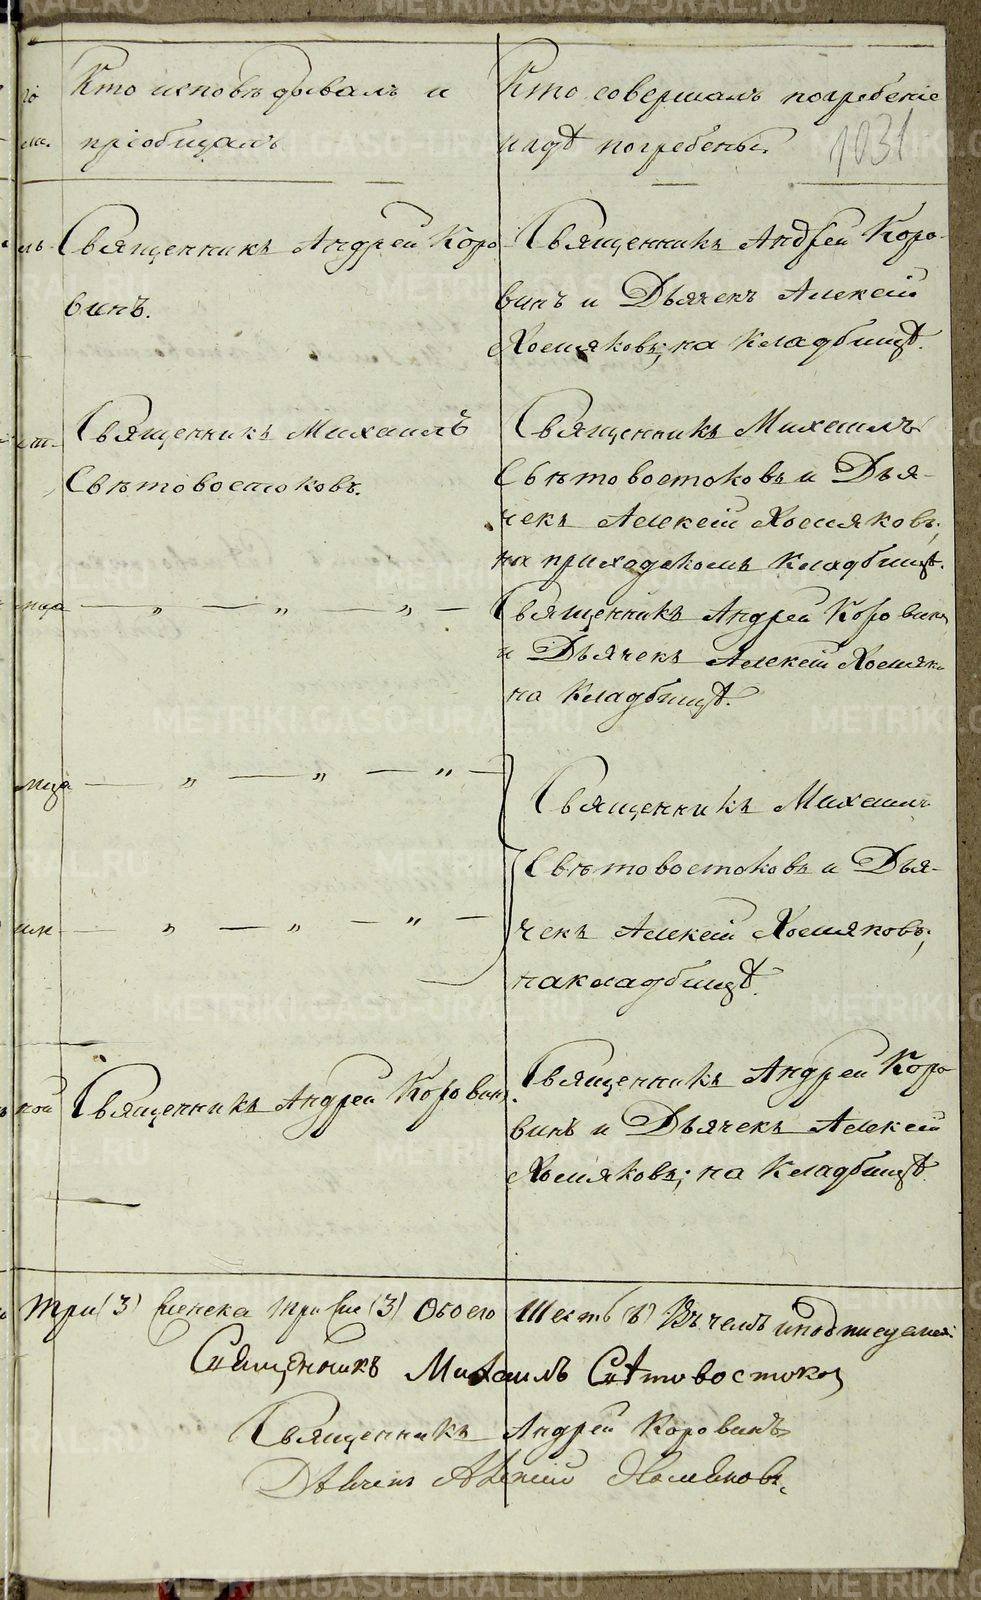 Кто исповѣдывалъ и
пріобщалъ
Кто совершалъ погребеніе
и гдѣ погребены.
1031
Священникъ Андрей Коро-
винъ.
Священникъ Андрей Коро-
винъ и Дьячекъ Алексѣй
Хомяковъ; на кладбищѣ.
Священникъ Михаилъ
Свѣтовостоковъ.
Священникъ Михаилъ
Свѣтовостоковъ и Дья-
чекъ Алексѣй Хомяковъ;
на приходскомъ кладбищѣ.
— „ — „ — „ —
Священникъ Андрей Коровинъ
и Дьячекъ Алексѣй Хомяковъ
на кладбищѣ.
— „ — „ — „ —
— „ — „ — „ —
Священникъ Михаилъ
Свѣтовостоковъ и Дья-
чекъ Алексѣй Хомяковъ;
на кладбищѣ.
Священникъ Андрей Коровинъ
Священникъ Андрей Коро-
винъ и Дьячекъ Алексѣй
Хомяковъ; на кладбищѣ.
три (3) женска три (3) Обоего Шесть (6) Въ чемъ и подписуемся:
Священникъ Михаилъ Свѣтовостоковъ
Священникъ Андрей Коровинъ
Дьячекъ Алексѣй Хомяковъ.
METRIKI.GASO-URAL.RU